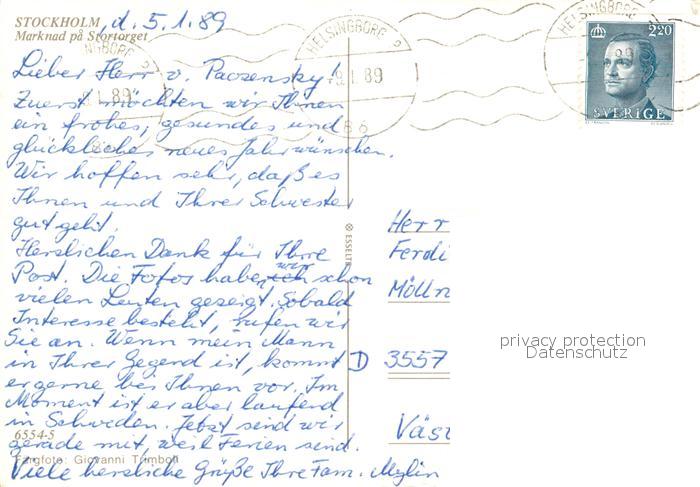 STOCKHOLM, d. 5.1.89
Marknad på Stortorget
Lieber Herr v. Paczensky!
Zuerst möchten wir Ihnen
ein frohes, gesundes und
glückliches neues Jahr wünschen.
Wir hoffen sehr, daß es
Ihnen und Ihrer Schwester
gut geht.
Herzlichen Dank für Ihre
Post. Die Fotos haben wir schon
vielen Leuten gezeigt. Sobald
Interesse besteht, rufen wir
Sie an. Wenn mein Mann
in Ihrer Gegend ist, kommt
er gerne bei Ihnen vor. Im
Moment ist er aber laufend
in Schweden. Jetzt sind wir
gerade mit, weil Ferien sind.
Viele herzliche Grüße Ihre Fam.
6554-5
Färgfoto: Giovanni Trimboli
ESSELTE
HELSINGBORG 2
9.1.89
86
2.20
SVERIGE
Herr
Ferdi
Mölln
D 3557
Väst
privacy protection
Datenschutz